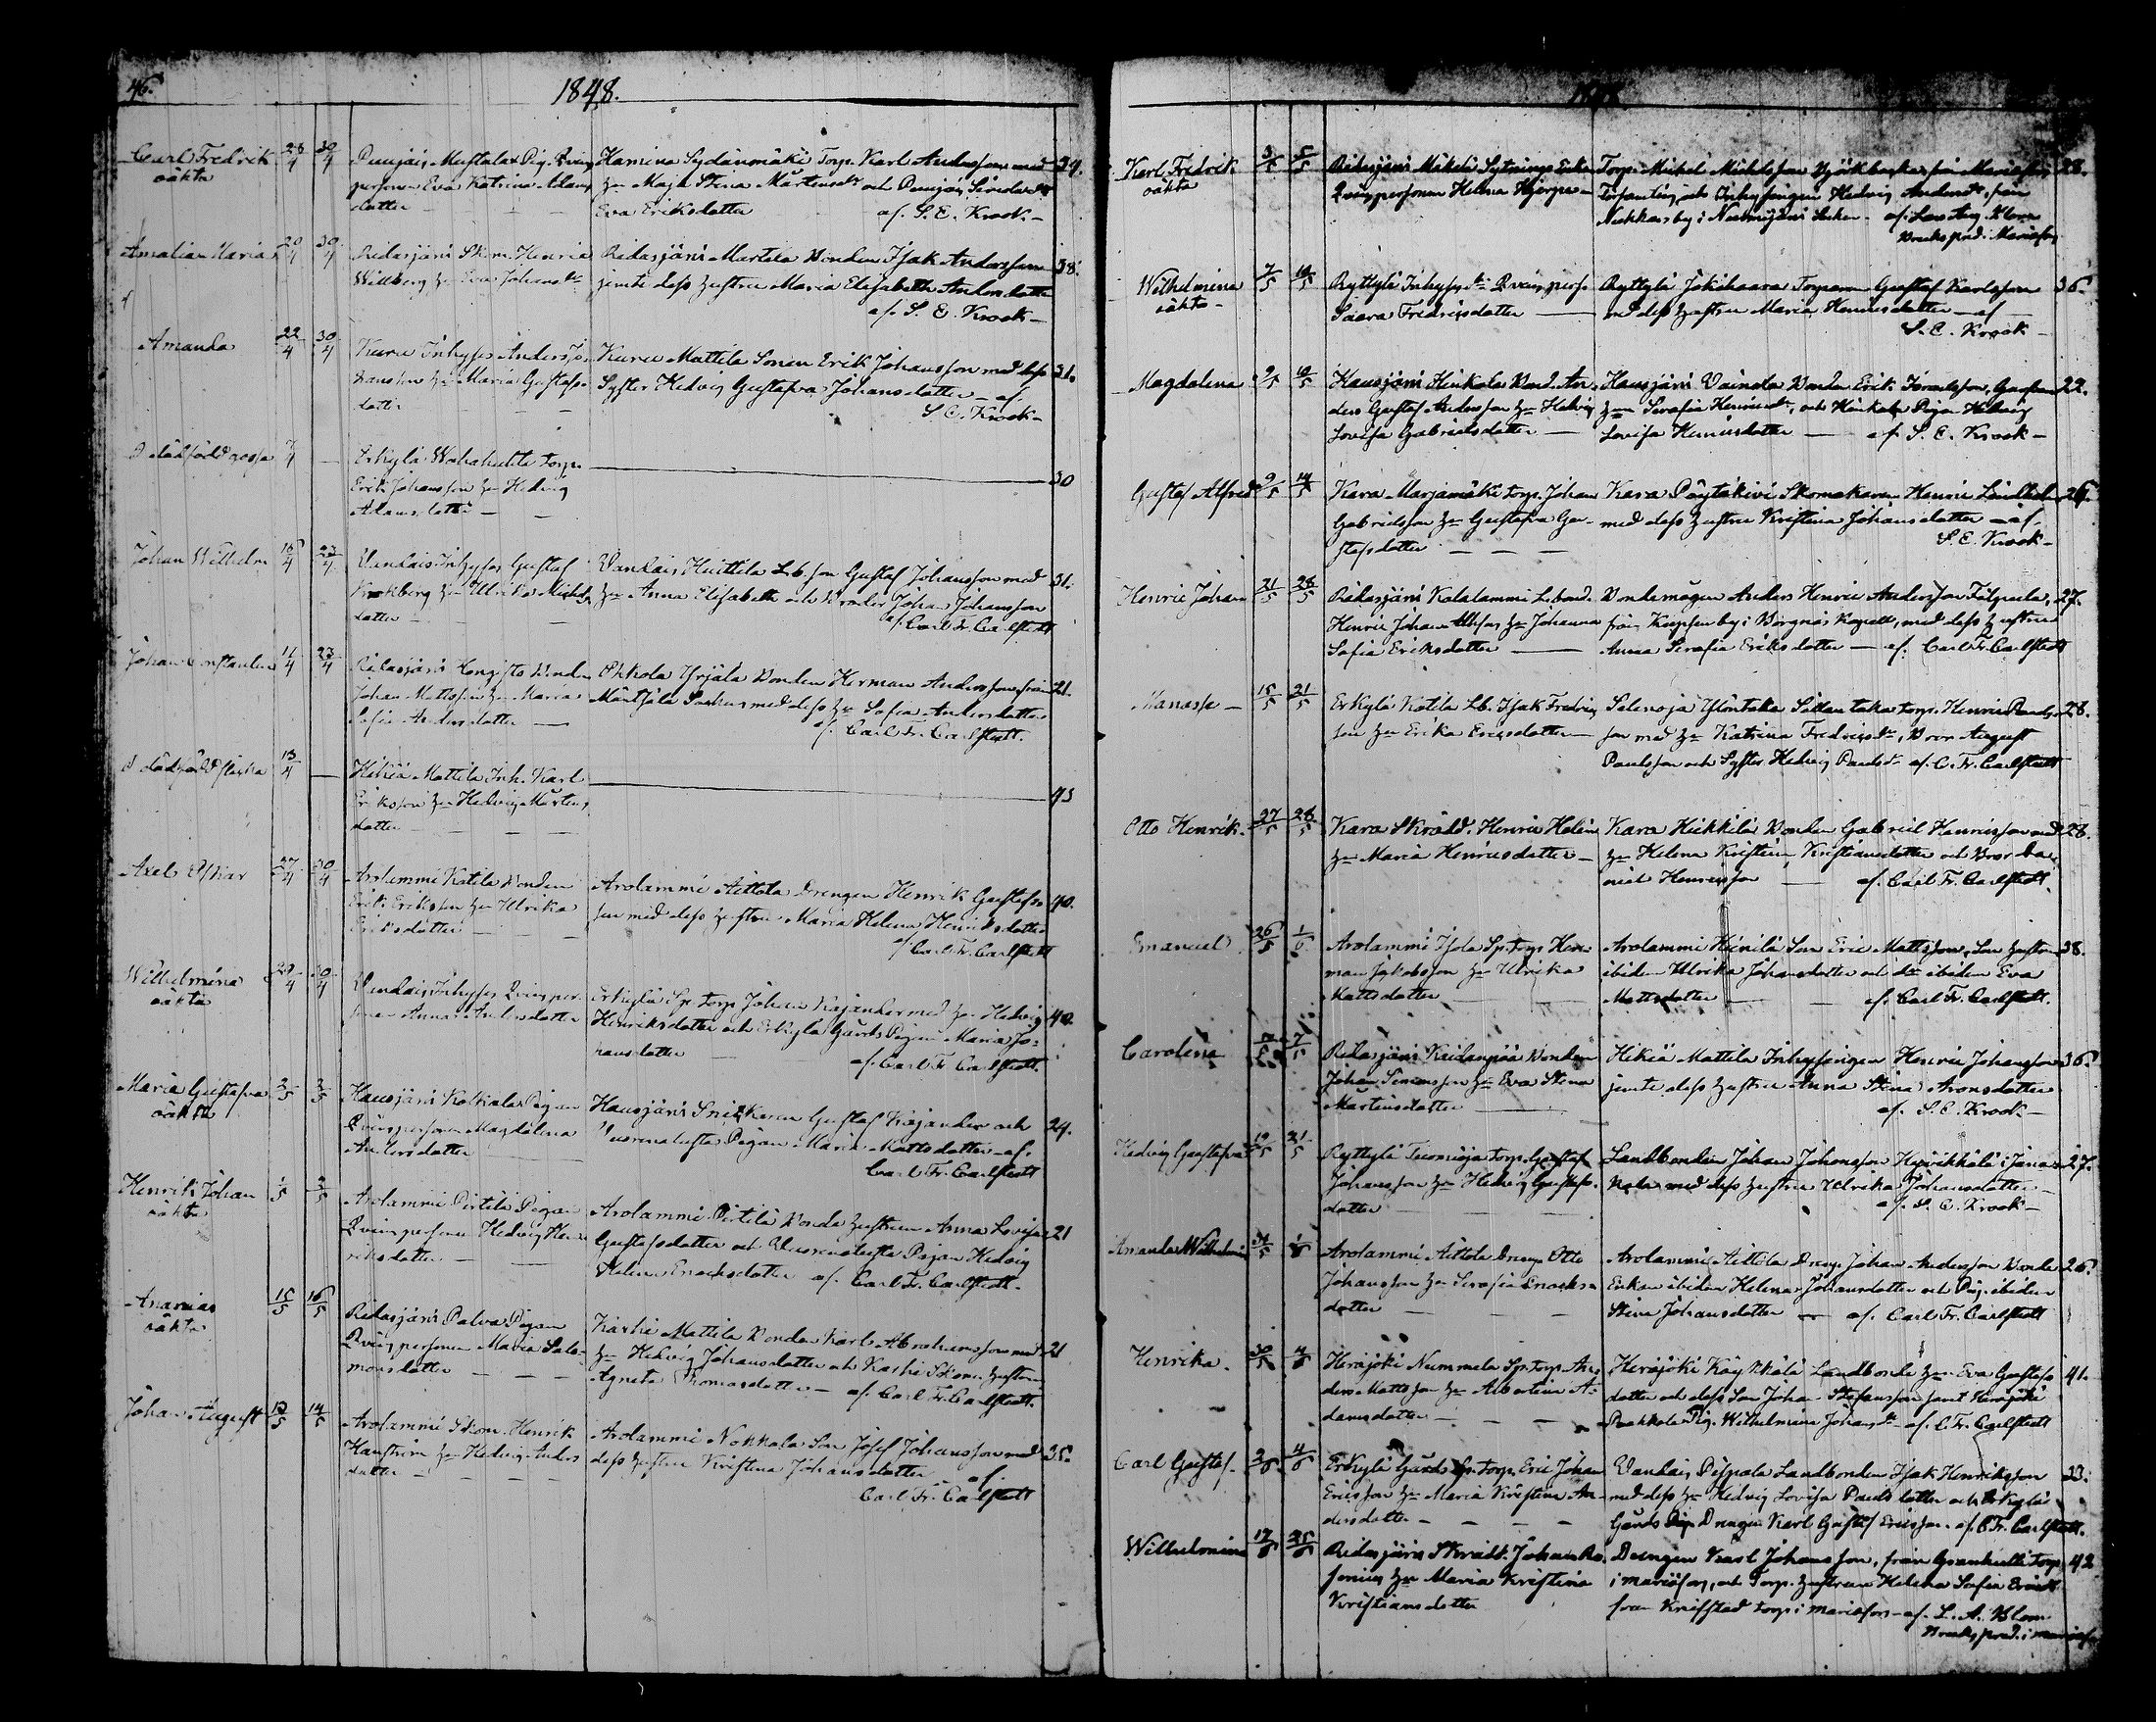 46.
1848.
Carl Fredrik 28/4 30/4 Punjais Mustalax Pig. Qvins
oäkta personen Eva Katrina Adams
dotter
Kamina Sydänmäki Torp. Karl Andersson med 34.
hu Maja Stina Mårtensdr och
Eva Eriksdotter af S. E. Krook
Amalia Maria 20/4 30/4 Ridasjärvi Skom. Henric
Willberg hu Eva Johansdr
Ridasjärvi Marttila Bonden Isak Andersson 38.
jemte dess hustru Maria Elisabeth Andersdotter
af S. E. Krook
Amanda 22/4 30/4 Karu Inhyses Anders Jo-
hansson hu Maria Gustafs-
dotter
Karu Mattila Sonen Erik Johansson med dess 31.
Syster Hedvig Gustafva Johansdotter af
S. E. Krook
dödfödd gosse 7/4 Erkylä torp.
Erik Johansson hu Hedvig
Adamsdotter
30
Johan Wilhelm 16/4 23/4 Vandais Inhyses Gustaf
Krokberg hu Ulrika Michels
dotter
Vandais Huittila Lb. son Gustaf Johansson med 31.
hu Anna Elisabeth och Johan Johansson
af Carl Fr. Carlstedt
Johan Constantin 11/4 23/4 Ridasjärvi Bonden
Johan Mattsson hu Maria
Sofia Andersdotter
Ohkola Yrjälä Bonden Herman Andersson från 21.
Mäntsälä Socken med dess hu Sofia Andersdotter
af Carl Fr. Carlstedt.
dödfödd flicka 13/4 Hikiä Mattila Inh. Karl
Eriksson hu Hedvig Mårtens
dotter
43
Axel Oskar 27/4 30/4 Arolammi Katila Bonden
Erik Eriksson hu Ulrika
Eriksdotter
Arolammi Aittola Drengen Henrik Gustafs- 40.
son med dess hustru Maria Helena Henriksdotter
af Carl Fr. Carlstedt
Wilhelmina 29/4 30/4 Vandais Inhyses Qvinsper-
oäkta sonen Anna Andersdotter
Erkylä Sp. torp. Johan Kajander med hu Hedvig 40.
Henriksdotter och Erkylä Gårds Pigan Maria Jo-
hansdotter
af Carl Fr. Carlstedt.
Maria Gustafva 2/5 3/5 Hausjärvi Kotkala Pigan
oäkta Qvinspersonen Magdalena
Andersdotter
Hausjärvi Snickaren Gustaf Kajander och 24.
Pigan Maria Mattsdotter af
Carl Fr. Carlstedt
Henrik Johan 1/5 3/5 Arolammi Pirtilä Pigan
oäkta Qvinspersonen Hedvig Hen-
riksdotter
Arolammi Pirtilä Bonde hustrun Anna Lovisa 21
Gustafsdotter och Pigan Hedvig
Helena Enochsdotter af Carl Fr. Carlstedt.
Ananias 15/5 16/5 Ridasjärvi Palva Pigan
oäkta Qvinspersonen Maria Salo-
monsdotter
Karhi Mattila Bonden Karl Abrahamsson med 21
hu Hedvig Johansdotter och Karhi Skom. hustrun
Agneta Thomasdotter af Carl Fr. Carlstedt.
Johan August 12/5 14/5 Arolammi Skom. Henrik
hu Hedvig Anders
dotter
Arolammi Nokkala Son Josef Johansson med 35.
dess hustru Kristina Johansdotter af
Carl Fr. Carlstedt
Karl Fredrik 3/5 5/5 Ridasjärvi Mäkelä Sytnings Enkan
oäkta Qvinspersonen Helena
Torp. Michel Michelsson Björkbacka från Mariefors 28.
och Inhysingen Hedvig Andersdr från
by i Nurmijärvi Socken af Lars Aug. Blom
Bruks pred. Mariefors
Wilhelmina 7/5 10/5 Ryttylä Inhyses Qvinspers.
oäkta Saara Fredricsdotter
Ryttylä Jokihaara Torparen Gustaf Karlsson 36.
med dess hustru Maria Henricsdotter af
S. E. Krook
Magdalena 9/5 10/5 Hausjärvi Hinkala Bond. An-
ders Gustaf Andersson hu Hedvig
Lovisa Gabrielsdotter
Hausjärvi Vainola Bonden Erik 22.
hu Serafia Henricsdr, och Hinkala Pigan Hedvig
Lovisa Henricsdotter af S. E. Krook
Gustaf Alfred 9/5 14/5 Kara Marjamäki torp. Johan
Gabrielsson hu Gustafva Gu-
stafsdotter
Kara Pöytäkivi Skomakaren Henric Lindholm 26.
med dess hustru Kristina Johansdotter af
S. E. Krook
Henric Johan 21/5 28/5 Ridasjärvi Kalalammi L.bond.
Henric Johan hu Johanna
Sofia Eriksdotter
Bondemågen Anders Henric Andersson 27.
från by i Borgnäs Kapell, med dess hustru
Anna Serafia Eriksdotter af Carl Fr. Carlstedt
Manasse 15/5 21/5 Erkylä Kotila Lb. Isak Fredrics
son hu Erika Ericsdotter
Salenoja torp. Henric Pauls- 28.
son med hu Katrina Fredricsdr, Bror August
Paulsson och Syster Hedvig Paulsdr af C. Fr. Carlstedt
Otto Henrik 27/5 28/5 Kara Skrädd. Henric Helin
hu Maria Henricsdotter
Kara Heikkilä Bonden Gabriel Henricsson med 28.
hu Helena Kristina Kristiansdotter och Bror Da-
niel Henricsson af Carl Fr. Carlstedt.
Emanuel 26/5 1/6 Arolammi Isola Sp.torp. Her-
man Jakobsson hu Ulrika
Mattsdotter
Arolammi Heinilä Son Eric Mattsson, Son hustru 38.
ibidem Ulrika Johansdotter och dr ibidem Eva
Mattsdotter af Carl Fr. Carlstedt.
Carolina 7/5 Ridasjärvi Bonden
Johan Simonsson hu Eva Stina
Mårtensdotter
Hikiä Mattila Inhysingen Henric Johansson 36.
jemte dess hustru Anna Stina Aronsdotter
af S. E. Krook
Hedvig Gustafva 19/5 21/5 Ryttylä torp. Gustaf
Johansson hu Hedvig Gustafs-
dotter
Landbonden Johan Johansson i Jana- 27.
kala med dess hustru Ulrika Johansdotter
af S. E. Krook
Amanda Wilhelmina 31/5 1/6 Arolammi Aittola Dreng Otto
Johansson hu Serafia Enochs-
dotter
Arolammi Aittola Dreng Johan Andersson Bonde 26.
Enkan ibidem Helena Johansdotter och Pig. ibidem
Stina Johansdotter af Carl Fr. Carlstedt
Henrika 30/5 4/6 Herajoki Nummela Sp.torp. An-
ders Mattsson hu Albertina A-
damsdotter
Herajoki Käyskälä Landbonde hu Eva Gustafs 41.
dotter och dess Son Johan Stefansson samt Herajoki
Pig. Wilhelmina Johansdr af C Fr. Carlstedt
Carl Gustaf 2/6 4/6 Erkylä Gårds Sp. torp. Eric Johan
Ericsson hu Maria Kristina An-
dersdotter
Vandais Piispala Landbonden Isak Henriksson 33.
med dess hu Hedvig Lovisa Paulsdotter och Erkylä
Gårds Drengen Karl Gustaf Ericsson af C Fr. Carlstedt.
Wilhelmina 17/6 25/6 Ridasjärvi Skrädd. Johan Ro-
senius hu Maria Kristina
Kristiansdotter
Drengen Karl Johansson, från torp 42
i Mariefors, och Torp. hustrun Helena Sofia
från torp i Mariefors af L. A. Blom
Bruks pred. i Mariefors